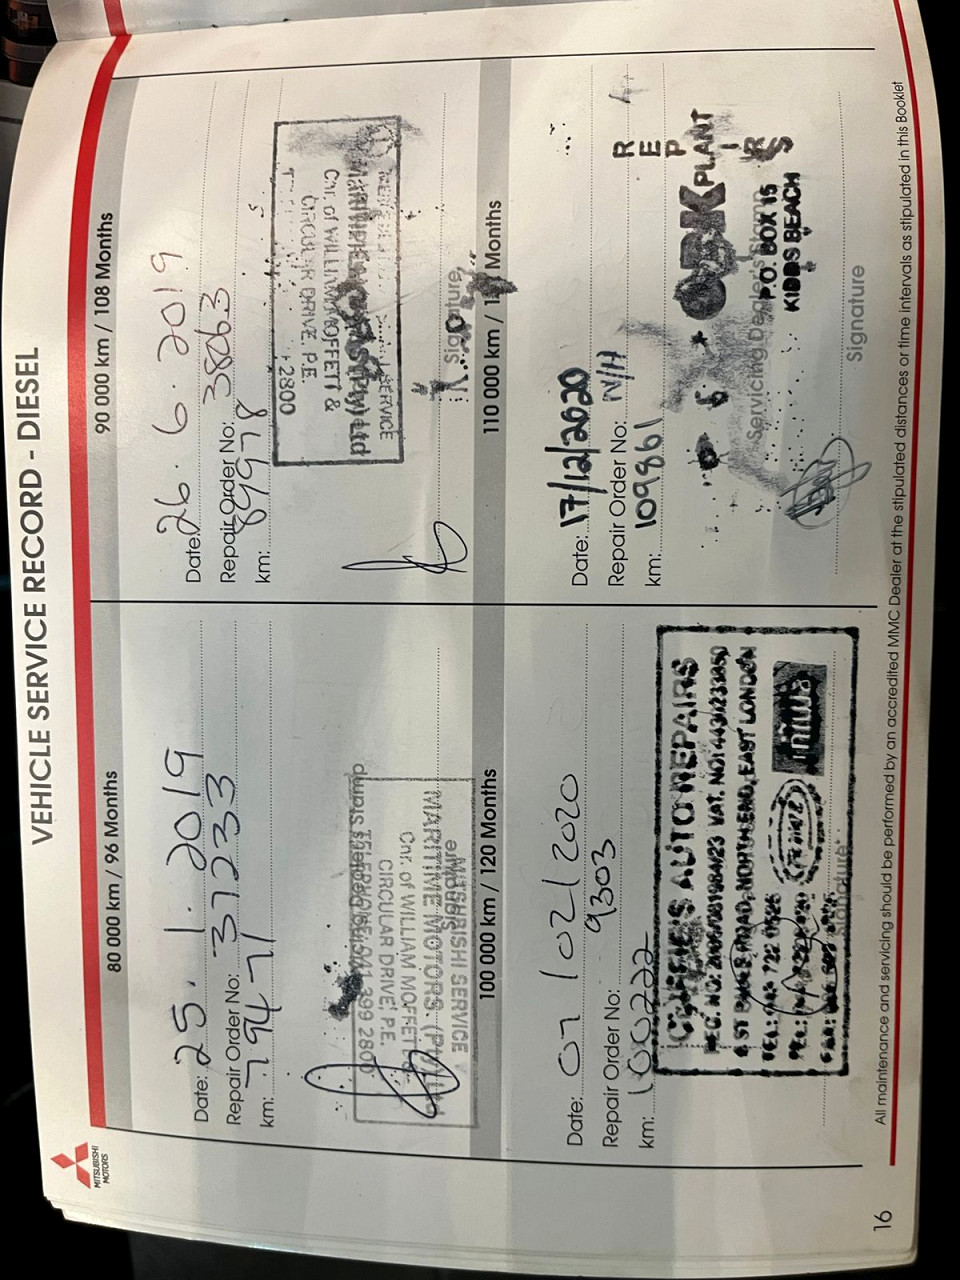 MITSUBISHI
MOTORS
VEHICLE SERVICE RECORD - DIESEL
80 000 km / 96 Months
Date: 25. 1. 2019
Repair Order No: 37233
km: 79471
Servicing Dealer's Stamp
MITSUBISHI SERVICE
MARITIME MOTORS (Pty) Ltd
Cnr. of WILLIAM MOFFETT &
CIRCULAR DRIVE, P.E.
TELEPHONE 041 399 2800
Signature
90 000 km / 108 Months
Date: 26. 6. 2019
Repair Order No: 38063
km: 89978
SERVICE
(Pty) Ltd
Cnr. of WILLIAM MOFFETT &
CIRCULAR DRIVE. P.E.
2800
Signature
100 000 km / 120 Months
Date: 07 / 02 / 2020
Repair Order No: 9303
km: 100222
AUTO REPAIRS
EAST LONDON
Signature
110 000 km / Months
Date: 17/12/2020
Repair Order No: N/A
km: 109861
PLANT
REPIRS
Servicing Dealer's Stamp
P.O. BOX 15
KIDDS BEACH
Signature
All maintenance and servicing should be performed by an accredited MMC Dealer at the stipulated distances or time intervals as stipulated in this Booklet
16